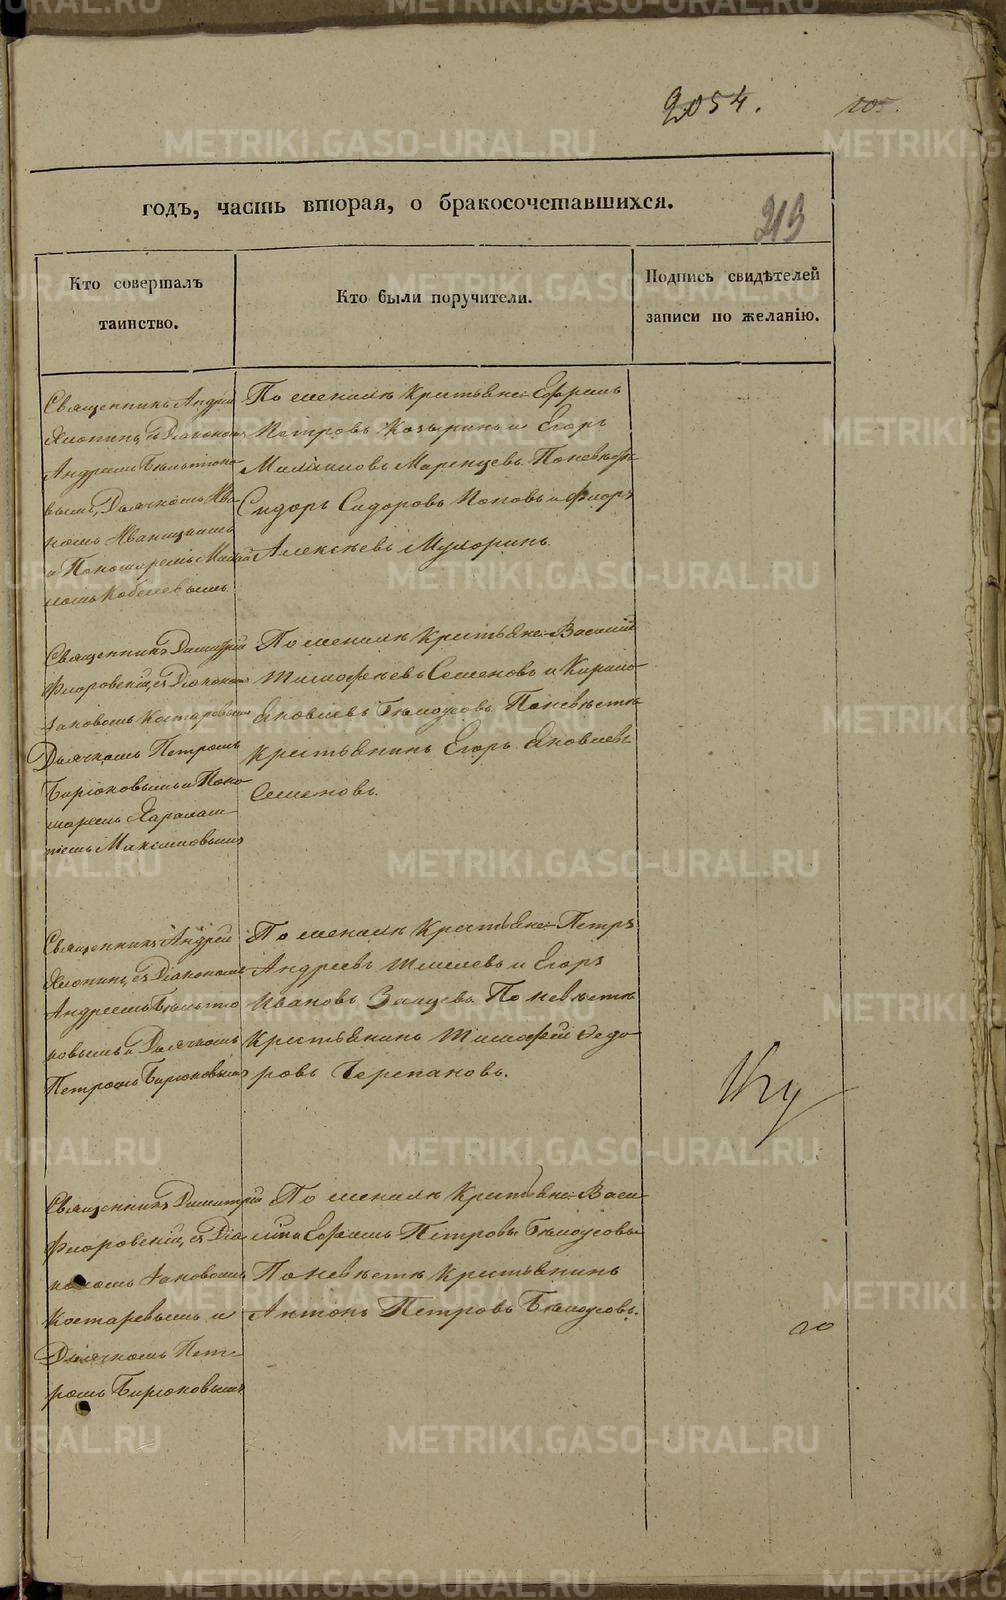 2054.
105.
годъ, часть вторая, о бракосочетавшихся.
213
Кто совершалъ
таинство.
Кто были поручители.
Подпись свидѣтелей
записи по желанію.
Священникъ Андрей
Хлопинъ, съ Діакономъ
Андреемъ Бѣльтюко-
вымъ, Дьячкомъ Ива-
номъ Иваницкимъ
и Пономаремъ
Кобелевымъ.
По женихѣ Крестьяне: Ефремъ
Петровъ Козыринъ и Егоръ
Михайловъ Маренцевъ. По невѣстѣ
Сидоръ Сидоровъ Поповъ и Флоръ
Алексѣевъ Мухоринъ.
Священникъ Димитрій
Флоровскій, съ Діакономъ
Іаковомъ Костаревымъ
Дьячкомъ Петромъ
Бирюковымъ и Поно-
маремъ Харалам-
піемъ Максимовымъ
По женихѣ Крестьяне: Василій
Тимофѣевъ Семеновъ и Кирило
Яковлевъ Бѣлоусовъ. По невѣстѣ
Крестьянинъ Егоръ Яковлевъ
Семеновъ.
Священникъ Андрей
Хлопинъ, съ Діакономъ
Андреемъ Бѣльтю-
ковымъ и Дьячкомъ
Петромъ Бирюковымъ
По женихѣ Крестьяне: Петръ
Андреевъ Шмелевъ и Егоръ
Ивановъ Зайцевъ. По невѣстѣ
Крестьянинъ Тимофей Федо-
ровъ Черепановъ.
Священникъ Димитрій
Флоровскій, съ Діа-
кономъ Іаковомъ
Костаревымъ и
Дьячкомъ Пет-
ромъ Бирюковымъ
По женихѣ Крестьяне: Васи-
лій и Ефремъ Петровы Бѣлоусовы
По невѣстѣ Крестьянинъ
Антонъ Петровъ Бѣлоусовъ.
METRIKI.GASO-URAL.RU